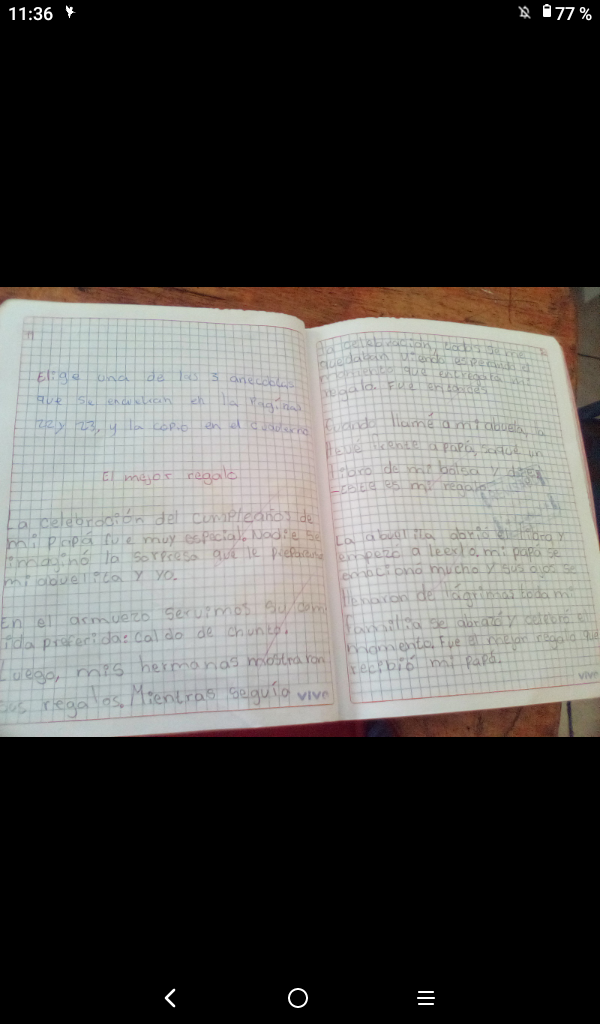 11:36
77 %
Elige una de las 3 anecdotas
que se encuentran en la Páginas
22 y 23, y la copio en el cuaderno.
El mejor regalo
La celebración del cumpleaños de
mi papá fue muy especial. Nadie se
imaginó la sorpresa que le preparamos
mi abuelita y yo.
En el armuezo servimos su com
ida preferida: caldo de chunto.
Luego, mis hermanas mostraron
sus regalos. Mientras seguía
vive
la celebración, todos se me
quedaban viendo esperando el
momento que entregara mi
regalo. Fue entonces
Cuando llamé a mi abuela, la
llevé frente a papá, saqué un
libro de mi bolsa y dije:
-este es mi regalo
La abuelita abrió el libro y
empezó a leerlo, mi papá se
emocionó mucho y sus ojos se
llenaron de lágrimas toda mi
familia se abrazó y celebró el
momento. Fue el mejor regalo que
recibió mi papá.
vive